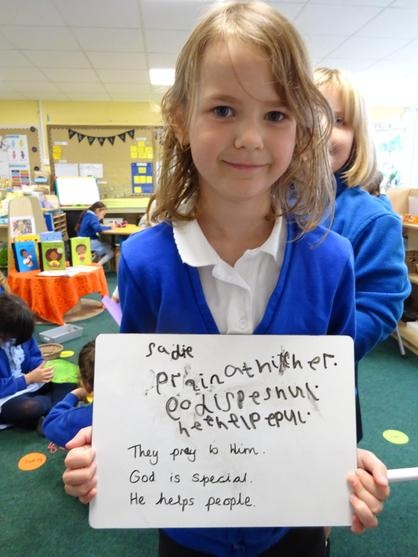 Sadie
Godispeshul.
hethelpepul.
They pray to Him.
God is special.
He helps people.